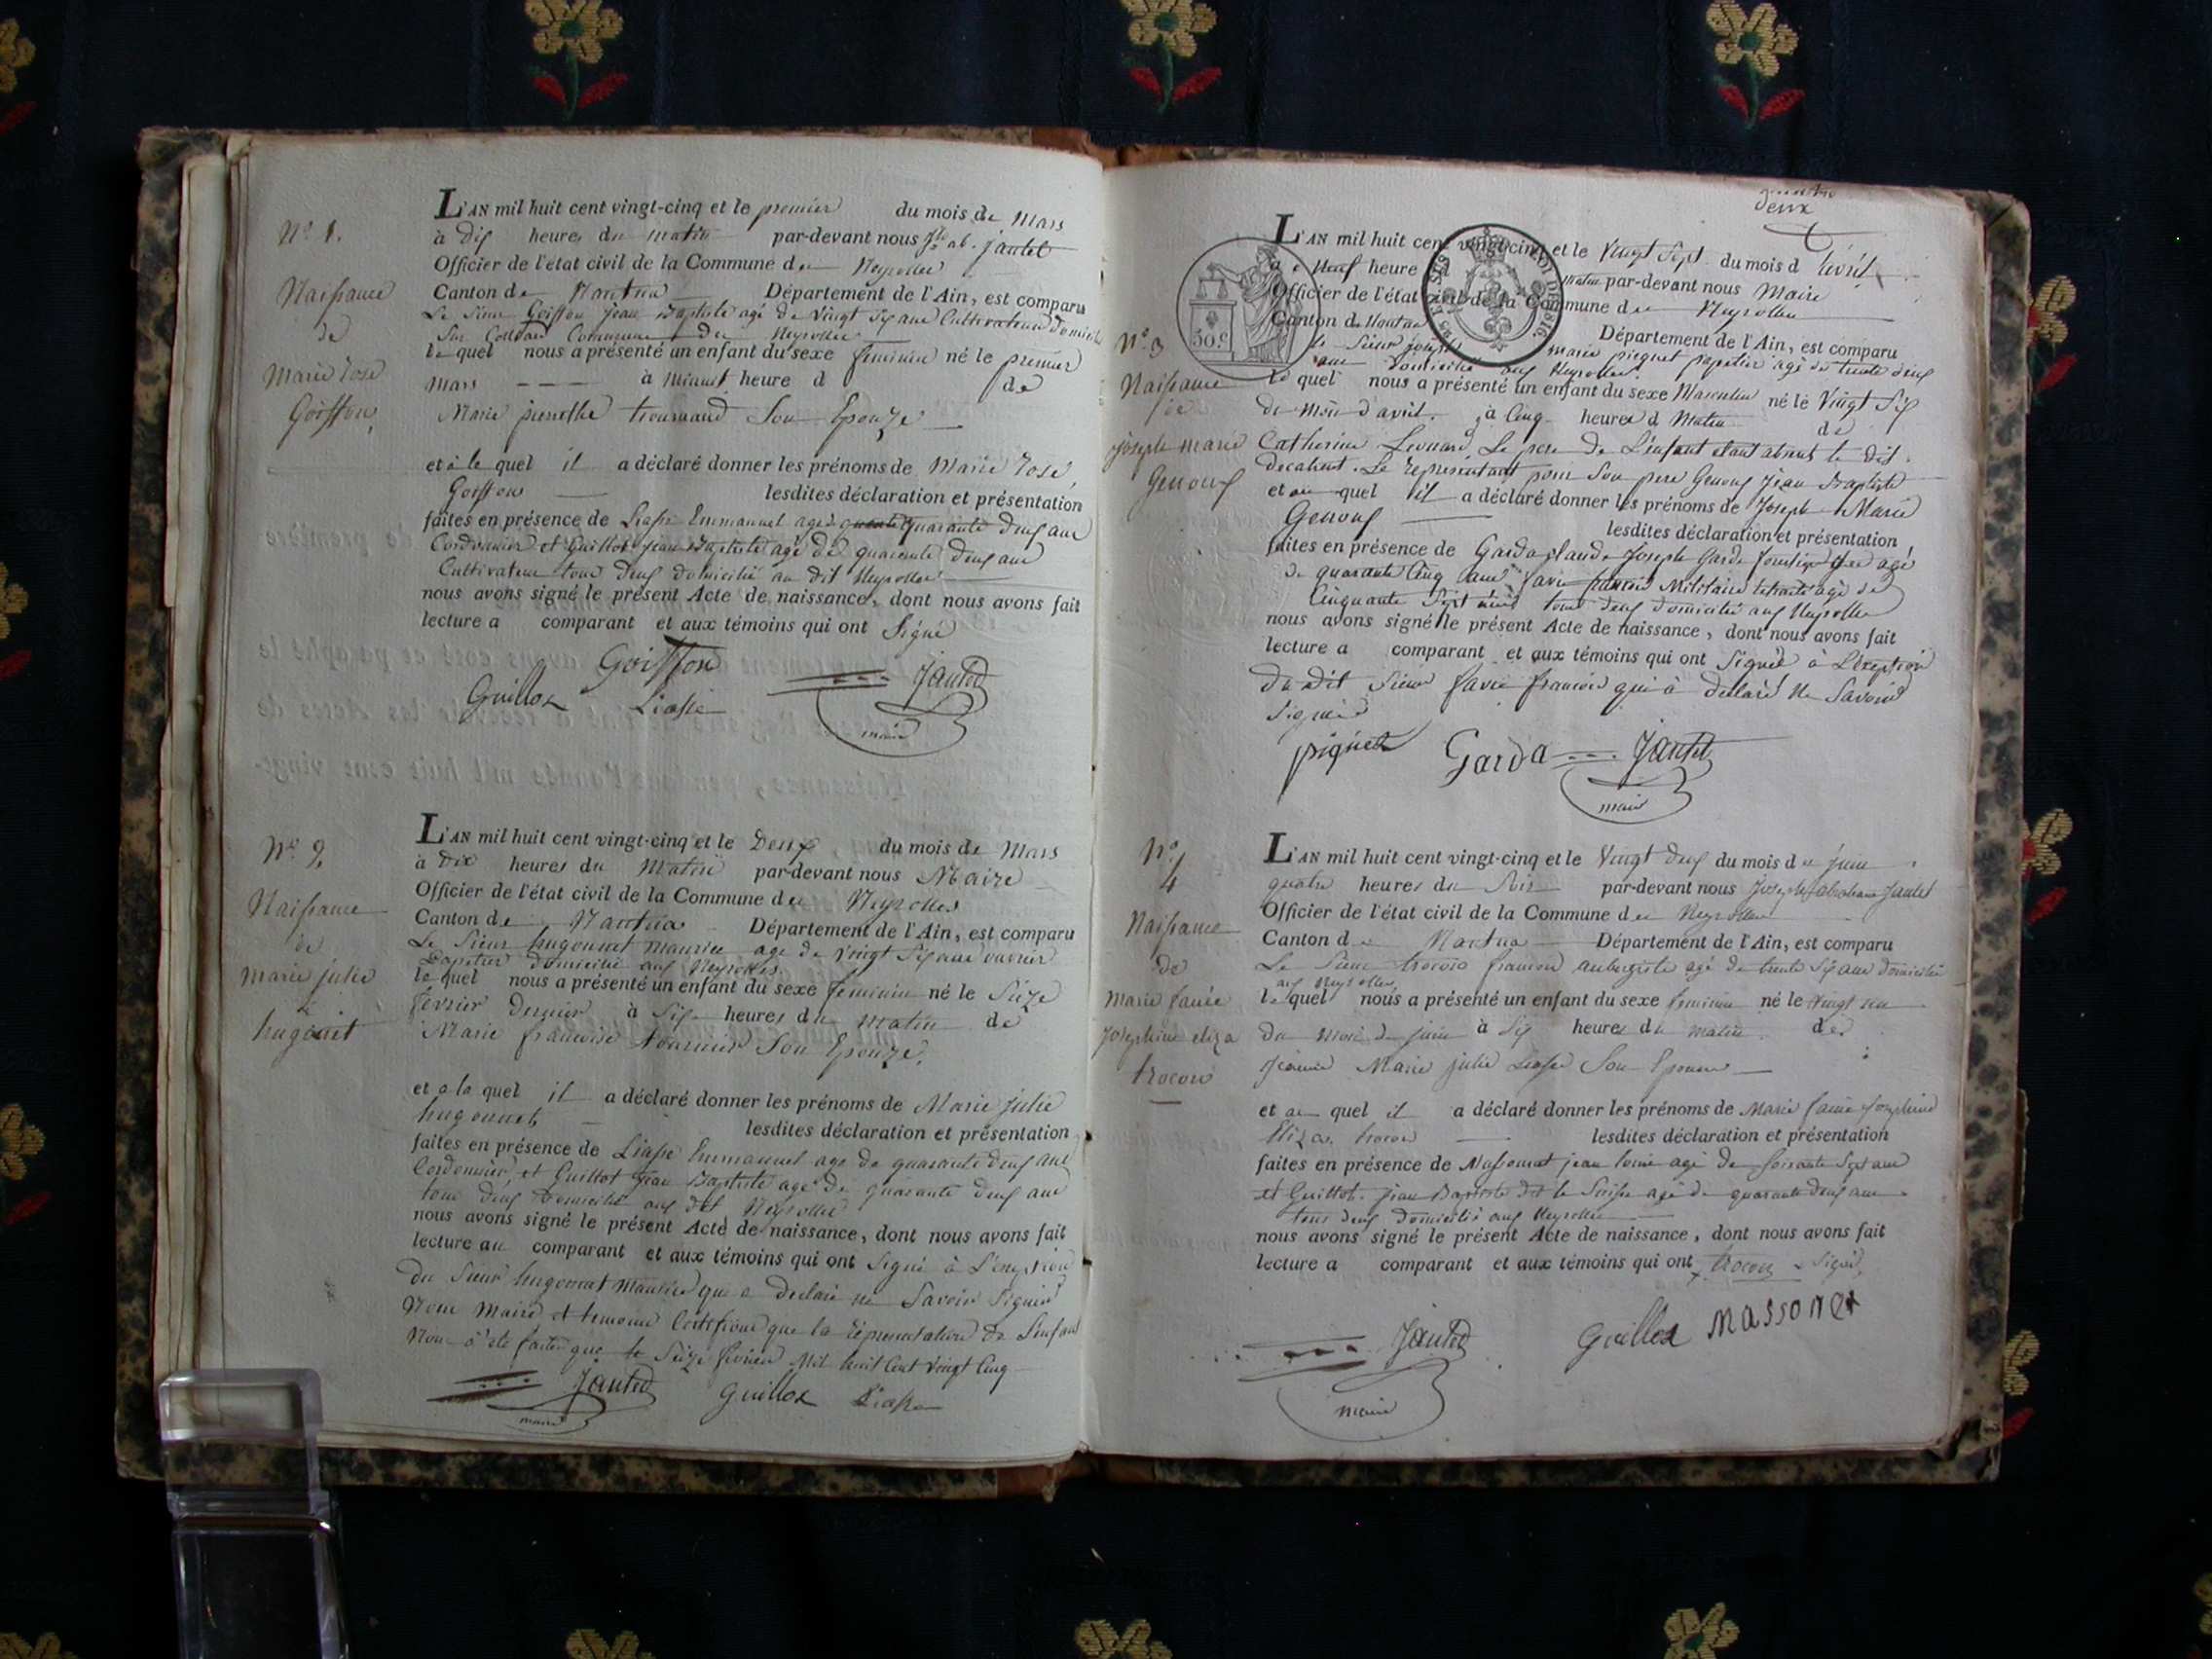 N.o 1.
Naissance
de
Marie rose
Goiffon
L'AN mil huit cent vingt-cinq et le premier du mois de Mars
à dix heures du matin par-devant nous Jh ab. jantet
Officier de l'état civil de la Commune de Neyrolles
Canton de Nantua Département de l'Ain, est comparu
Le Sieur Goiffon jean Baptiste agé de vingt Six ans Cultivateur domicilié
Sur Commune de Neyrolles
lequel nous a présenté un enfant du sexe feminin né le premier
Mars à minuit heure d de
Marie pierrette tournaud Son Epouze
et à lequel il a déclaré donner les prénoms de Marie rose
Goiffon lesdites déclaration et présentation
faites en présence de Liasse Emmanuel agé quarante deux ans
Cordonnier et Guillot jean Baptiste agé de quarante deux ans
Cultivateur tous deux domicilié au dit Neyrolles
nous avons signé le présent Acte de naissance, dont nous avons fait
lecture a comparant et aux témoins qui ont Signé
Goiffon
Guillot Liasse Jantet
maire
N.o 2.
Naissance
de
marie julie
hugonet
L'AN mil huit cent vingt-cinq et le Deux du mois de Mars
à dix heures du Matin par-devant nous Maire
Officier de l'état civil de la Commune de Neyrolles
Canton de Nantua Département de l'Ain, est comparu
Le Sieur hugonnet maurice agé de vingt Six ans ouvrier
Papetier domicilié aux Neyrolles
lequel nous a présenté un enfant du sexe feminin né le Seize
fevrier dernier à Six heures du matin de
Marie francoise tournier Son Epouze
et a la quel il a déclaré donner les prénoms de Marie julie
hugonnet lesdites déclaration et présentation
faites en présence de Liasse Emmanuel agé de quarante deux ans
Cordonnier et Guillot jean Baptiste agé de quarante deux ans
tous deux domicilié aux dit Neyrolles
nous avons signé le présent Acte de naissance, dont nous avons fait
lecture au comparant et aux témoins qui ont Signé à L'exeption
du Sieur hugonnet Maurice qui a declaré ne Savoir Signer
Nous Maire et temoins Certifions que la représentation de L'enfant
Nous a été faite que le Seize fevrier Mil huit Cent Vingt Cinq
Jantet Guillot Liasse
maire
deux
N.o 3
Naissance
de
joseph marie
Genoux
L'AN mil huit cent vingt-cinq et le Vingt Sept du mois d avril
à Neuf heure matin par-devant nous Maire
Officier de l'état civil de la Commune de Neyrolles
Canton de Nantua Département de l'Ain, est comparu
le Sieur joseph marie piquet papetier agé de trente deux
ans domicilié aux Neyrolles
lequel nous a présenté un enfant du sexe Masculin né le Vingt Six
du Mois d'avril à Cinq heures d Matin de
Catherine Leonard Le pere de L'enfant etant absent le dit
declarent. Le representant pour Son pere Genoux jean Baptiste
et au quel il a déclaré donner les prénoms de Joseph Marie
Genoux lesdites déclaration et présentation
faites en présence de Garda Claude Joseph Garde forestier agé
de quarante Cinq ans favre francois Militaire retraité agé de
Cinquante Sept ans tous deux domicilié aux Neyrolles
nous avons signé le présent Acte de naissance, dont nous avons fait
lecture a comparant et aux témoins qui ont Signé à L'exeption
du dit Sieur favre francois qui à declaré Ne Savoir
Signer
piquet Garda Jantet
maire
N.o 4
Naissance
de
Marie fanie
Josephine eliza
trocon
L'AN mil huit cent vingt-cinq et le Vingt deux du mois de juin
quatre heures du Soir par-devant nous Joseph abraham Jantet
Officier de l'état civil de la Commune de Neyrolles
Canton de Nantua Département de l'Ain, est comparu
Le Sieur trocon francois aubergiste agé de trente Six ans domicilié
aux Neyrolles
lequel nous a présenté un enfant du sexe feminin né le vingt un
du mois de juin à Six heures du matin de
jeanne Marie julie Liasse Son Epouse
et au quel il a déclaré donner les prénoms de Marie fanie Josephine
Eliza trocon lesdites déclaration et présentation
faites en présence de Massonnet jean louis agé de Soixante Sept ans
et Guillot jean Baptiste dit le Suisse agé de quarante deux ans
tous deux domiciliés aux Neyrolles
nous avons signé le présent Acte de naissance, dont nous avons fait
lecture a comparant et aux témoins qui ont trocon Signé
Jantet Guillot Massonet
maire
50.c